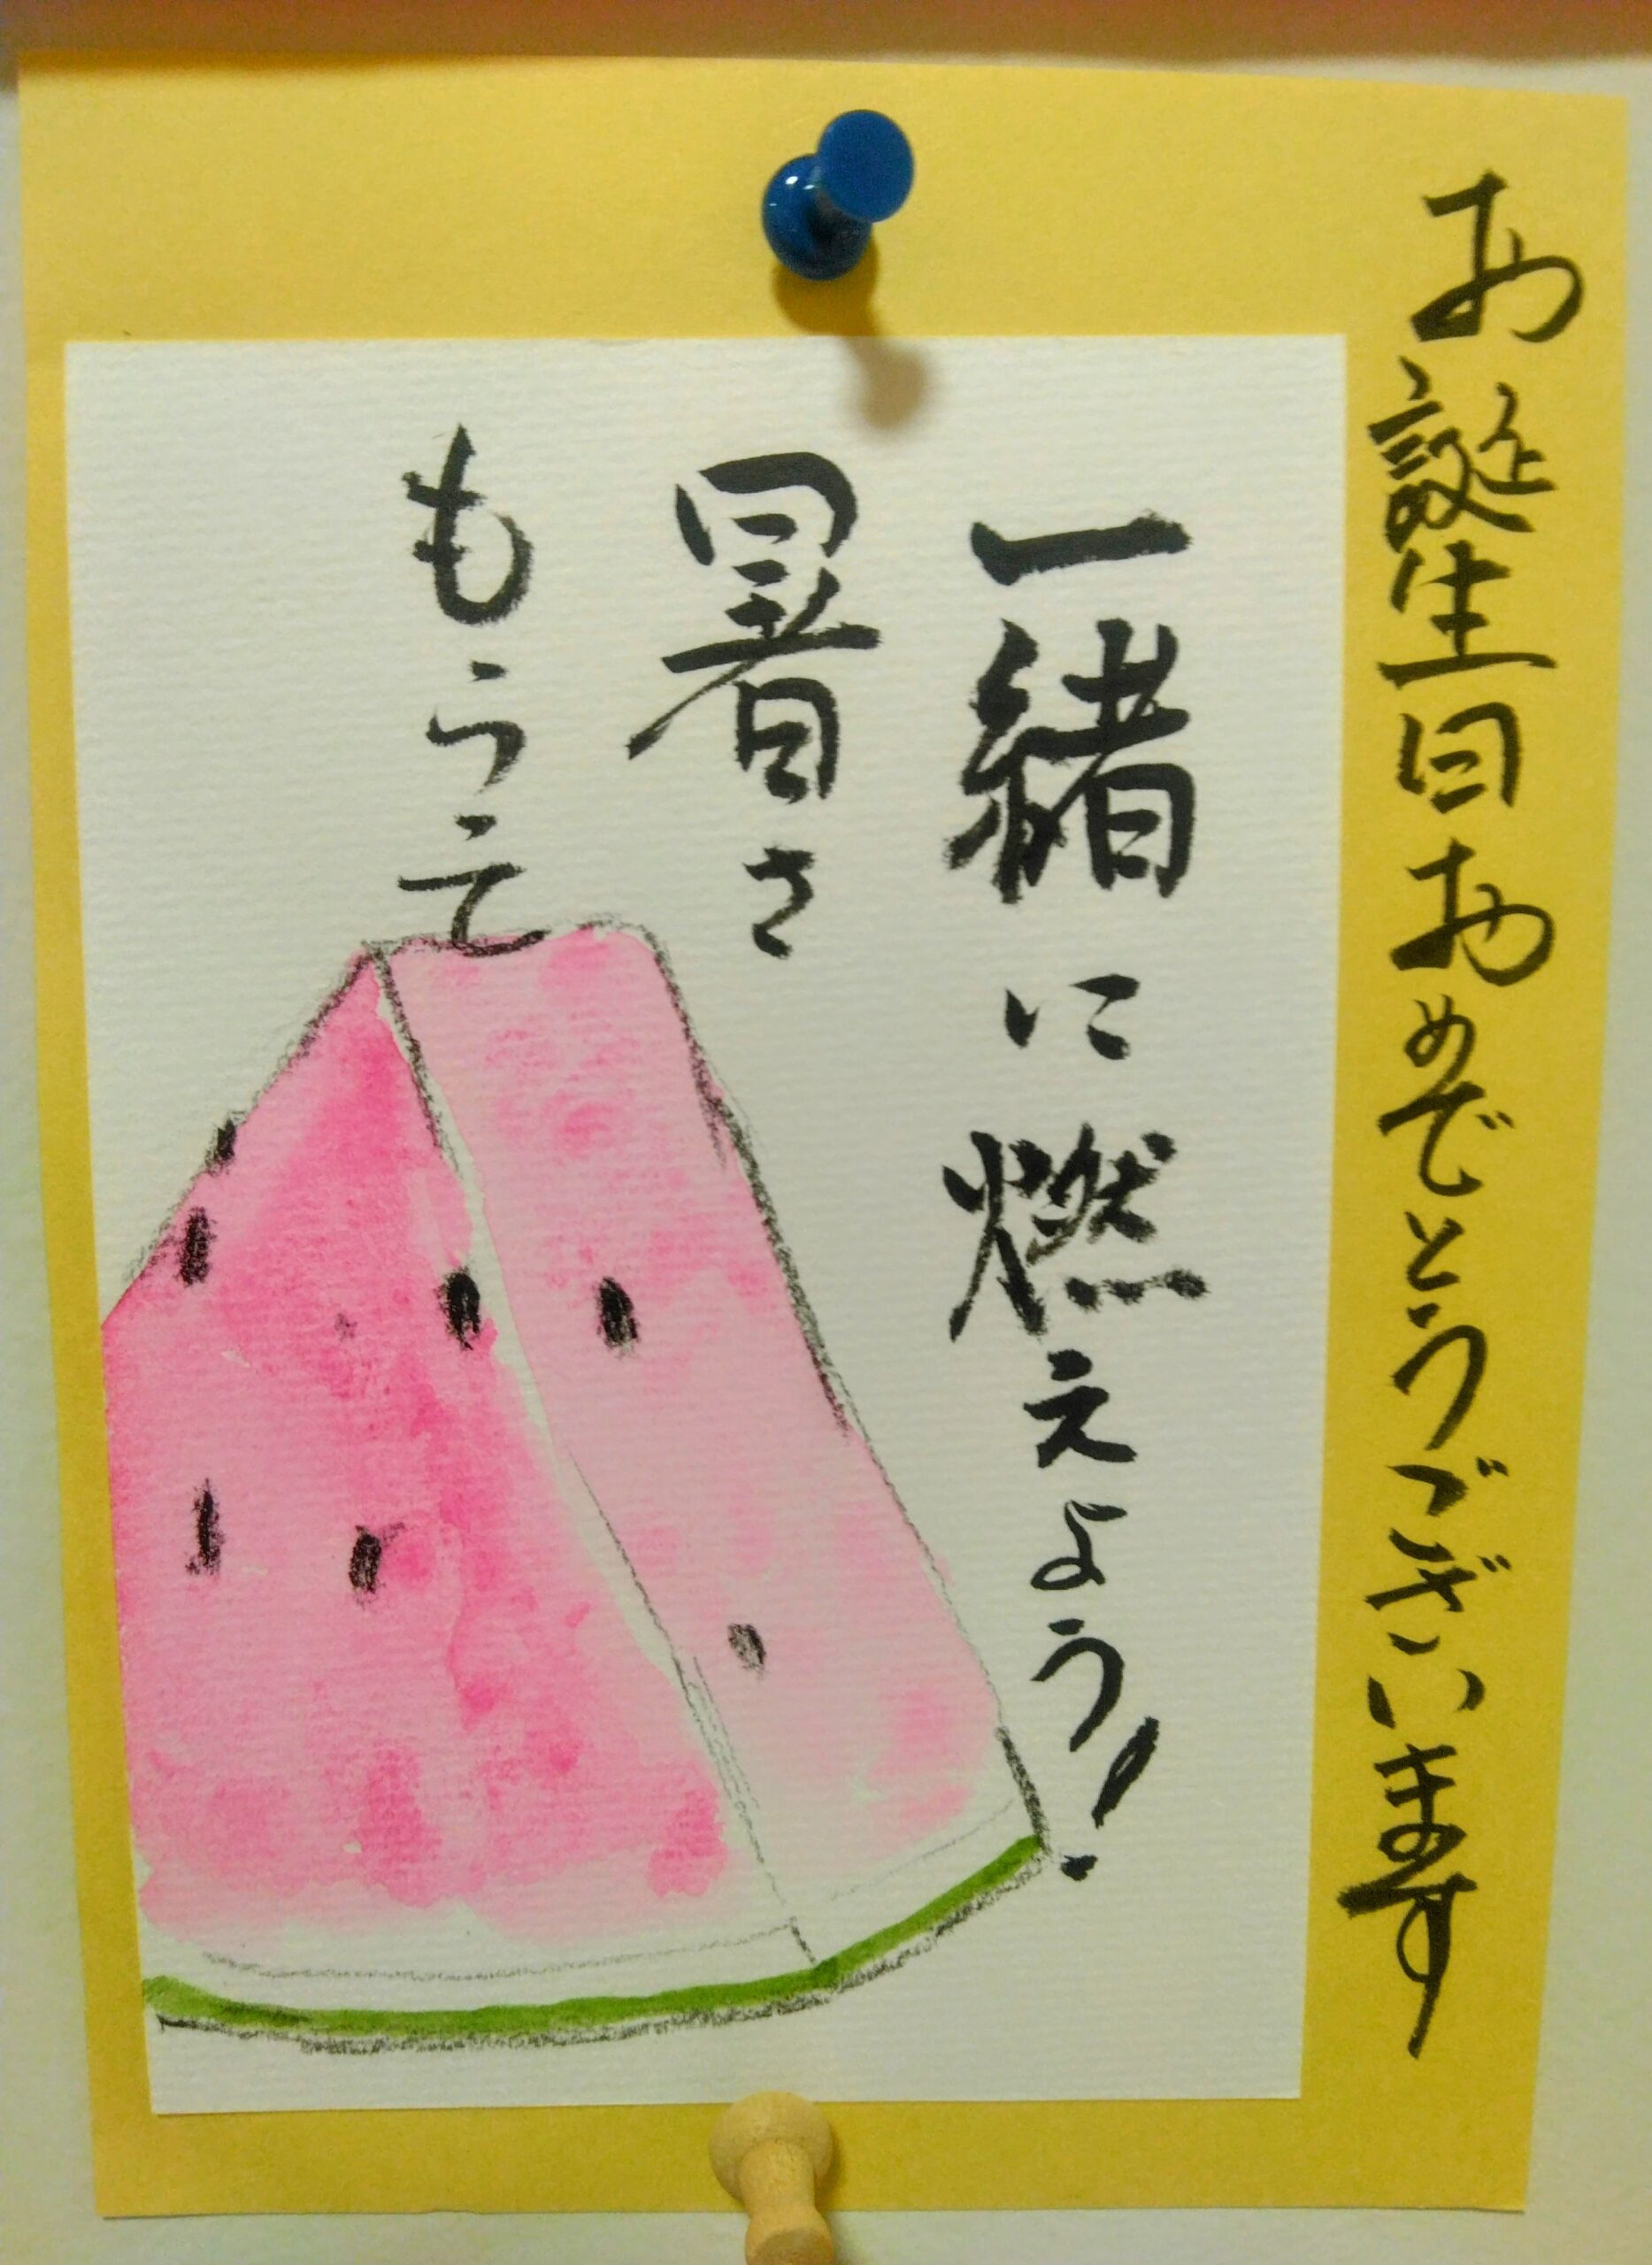 お誕生日おめでとうございます
一緒に燃えよう!
暑さ
もらって